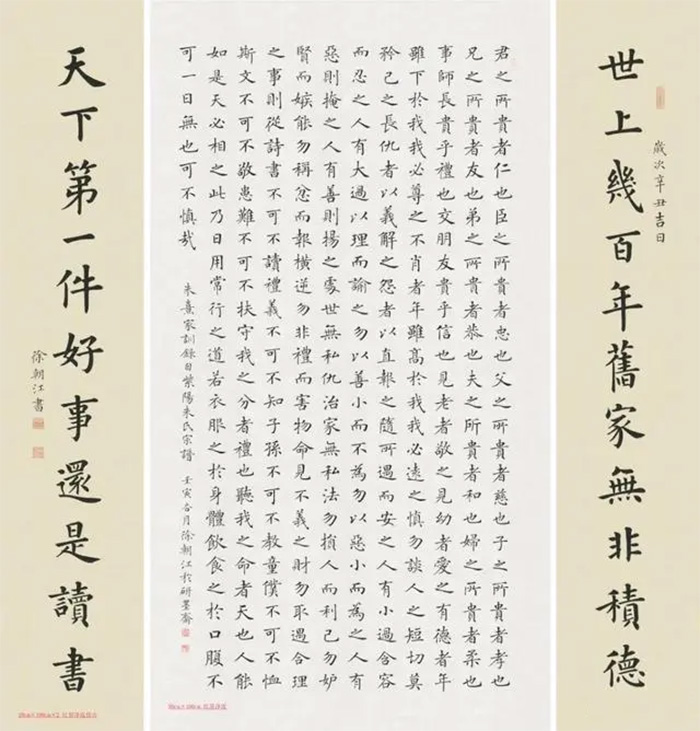 世上幾百年舊家無非積德
歲次辛丑吉日
君之所貴者仁也臣之所貴者忠也父之所貴者慈也子之所貴者孝也
兄之所貴者友也弟之所貴者恭也夫之所貴者和也婦之所貴者柔也
事師長貴乎禮也交朋友貴乎信也見老者敬之見幼者愛之有德者年
雖下於我我必尊之不肖者年雖高於我我必遠之慎勿談人之短切莫
矜己之長仇者以義解之怨者以直報之隨所遇而安之人有小過含容
而忍之人有大過以理而諭之勿以善小而不為勿以惡小而為之人有
惡則掩之人有善則揚之處世無私仇治家無私法勿損人而利己勿妒
賢而嫉能勿稱忿而報橫逆勿非禮而害物命見不義之財勿取遇合理
之事則從詩書不可不讀禮義不可不知子孫不可不教童僕不可不恤
斯文不可不敬患難不可不扶守我之分者禮也聽我之命者天也人能
如是天必相之此乃日用常行之道若衣服之於身體飲食之於口腹不
可一日無也可不慎哉
朱熹家訓錄自紫陽朱氏宗譜 壬寅杏月徐朝江於研墨齋
天下第一件好事還是讀書
徐朝江書